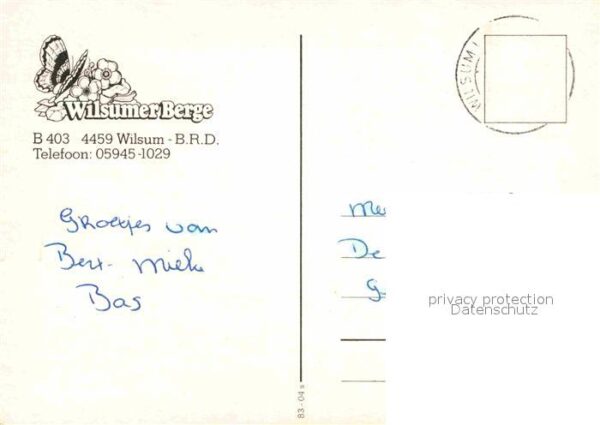 Wilsumer Berge
B 403 4459 Wilsum - B.R.D.
Telefoon: 05945-1029
Groetjes van
Bert - Mieke
Bas
WILSUM
Me
De
G
privacy protection
Datenschutz
83-04 s